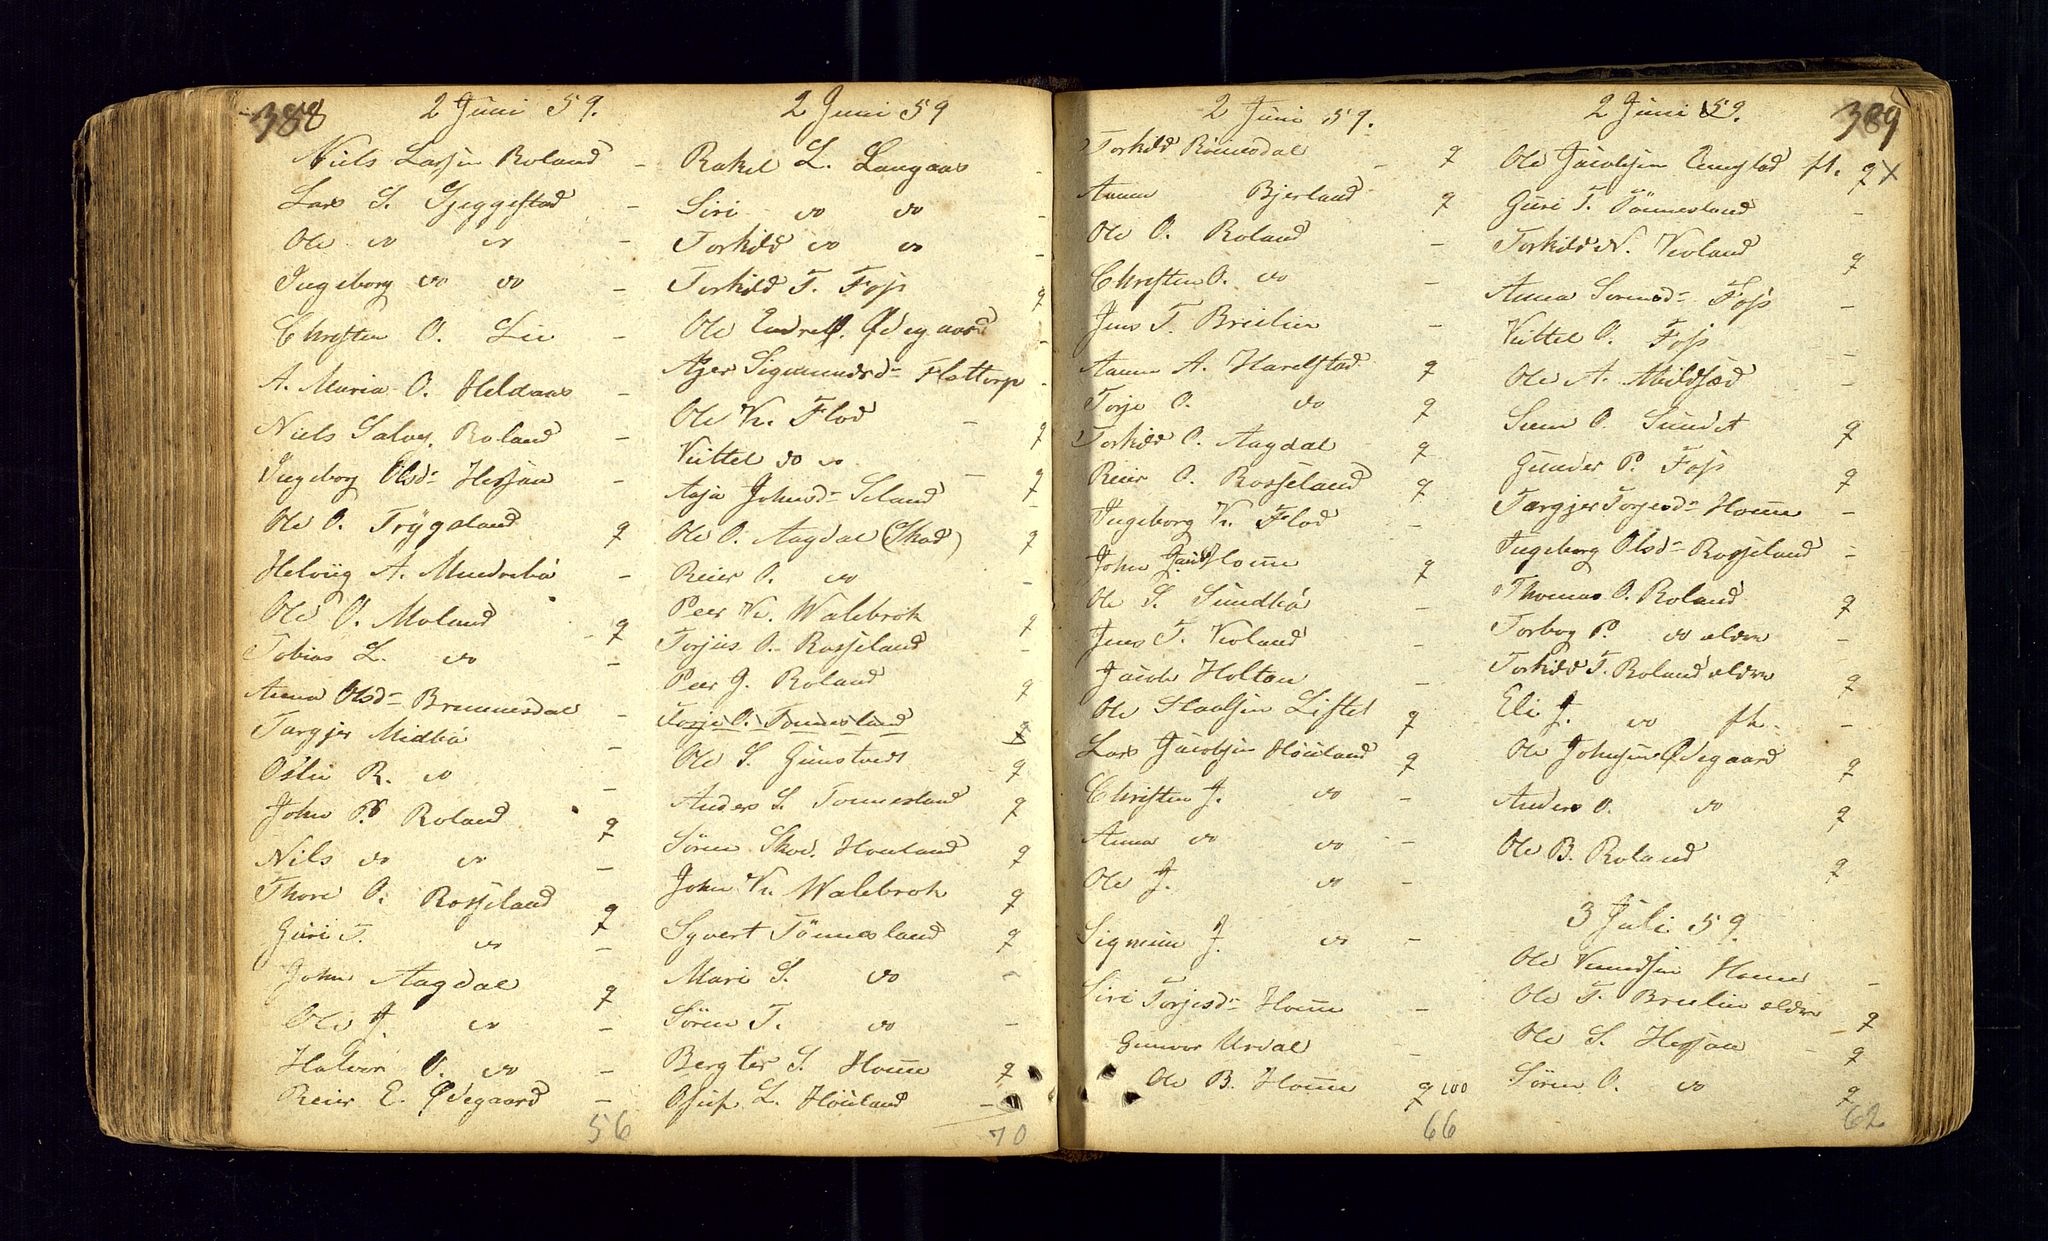 388
2 Juni 59.
Niels Larsen Roland -
Lars S. Gjeggestad -
Ole do do -
Ingeborg do do -
Christen O. Lie -
A. Maria O. Heldaas -
Niels Salvs. Roland -
Ingeborg Olsd. Hessaa -
Ole O. Trygsland q
Helvig A. -
Ole O. Moland q
Tobias L. do -
Anna Olsd. Brunnesdal -
Targjer Midbö -
Oslie R. do -
John P. Roland q
Nils do do -
Thore O. Rosseland q
Guri T. do -
John Aagdal q
Ole J. do -
Halvor O. do -
Reier E. Ødegaard -
56
2 Juni 59
Rakel L. Langaas -
Siri do do -
Torkild do do -
Torkild T. Foss q
Ole Endre Ødegaard -
Sigmundsd. Flottorp -
Ole Kn. Flod - q
Kittel do do - q
Asja Johnsd. Seland -
Ole O. Aagdal (Skod) q
Reier O. do -
Peer Kn. Walebrok q
Torjus O. Rosseland -
Peer J. Roland q
Torje O. Tönnesland q
Ole S. Gunstvedt q
Anders S. Tonnesland q
Sören Skod. Houland q
John Kn. Walebrok q
Syvert Tönnesland q
Mari S. do -
Sören T. do -
Bergter S. Home q
L. Höuland -
70
2 Juni 59.
Torkild Rönnesdal - q
Anne Bjerland q
Ole O. Roland -
Christen O. do -
Jens T. Breilien -
Anne A. Harelstad q
Torje O. do q
Torkild O. Aagdal q
Reier O. Rosseland q
Ingeborg Kn. Flod -
John Home q
Ole S. Sundbö -
Jens T. Kvoland -
Jacob Holtan -
Ole Liftel q
Lars Jacobsen Höuland q
Christen J. do -
Anna do do -
Ole J. do -
Sigmun J. do -
Siri Torjesd. Home -
Gunvor Urdal -
Ole B. Home q 100
66
2 Juni 59.
389
Ole Jacobsen ft. q x
Guri T. Tönnesland -
Torkild N. Kvoland q
Anna Sorensd. Foss -
Kittel O. Foss -
Ole A. -
Siem O. Sundet q
Gunder P. Foss q
Targjer Torjesd. Home -
Ingeborg Olsd. Rosseland -
Thomas O. Roland q
Torbor P. do eldre -
Torkild T. Roland eldre q
Eli J. do fh. -
Ole Johnsen Ødegaard q
Anders O. do q
Ole B. Roland q
3 Juli 59.
Ole Knudsen Home -
Ole T. Breilien eldre q
Ole S. Hessaa - q
Sören O. do q
62